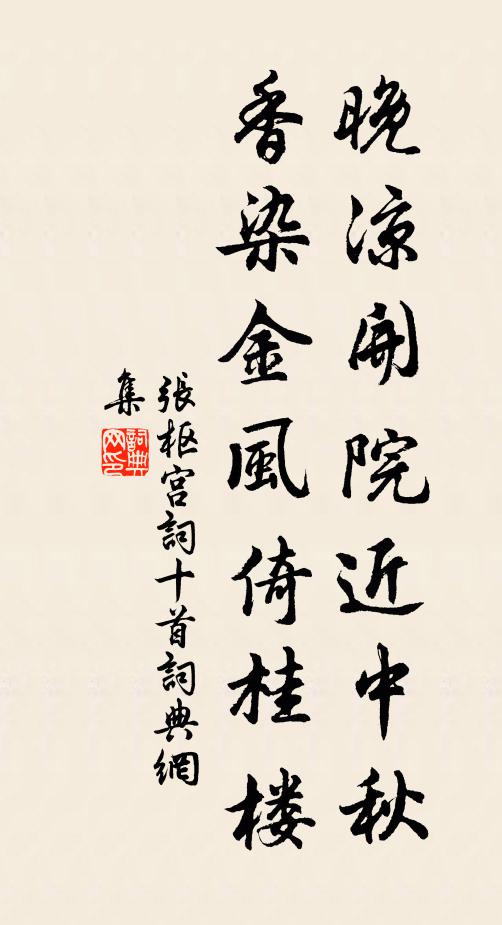 晚凉開院近中秋
香染金風倚桂楼
張枢宫詞十首詞典網
集
詞典
网印